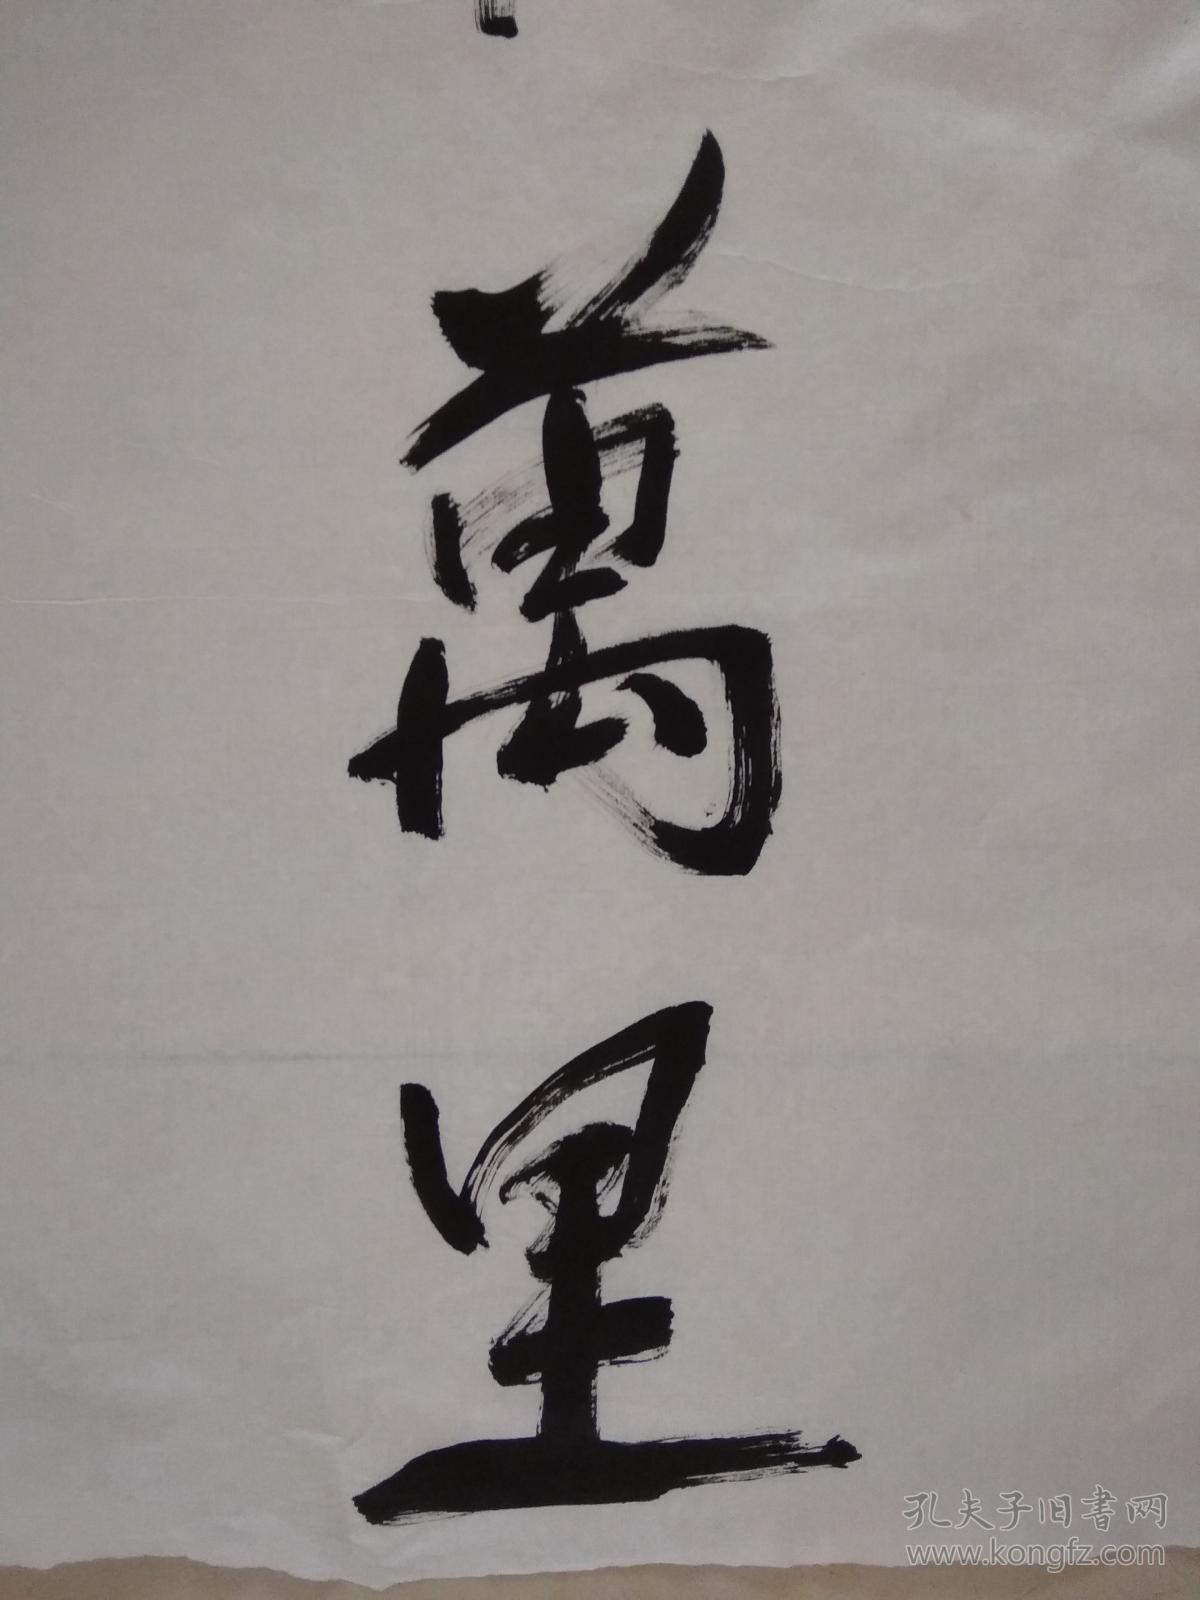 萬里
孔夫子旧書网
www.kongfz.com